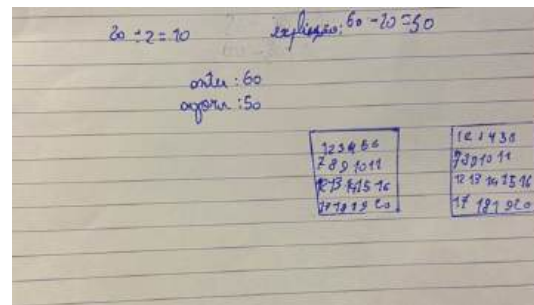 20 ÷ 2 = 10
explicação: 60 - 20 = 50
antes: 60
agora: 50
1 2 3 4 5 6
7 8 9 10 11
12 13 14 15 16
17 18 19 20
1 2 3 4 5 6
7 8 9 10 11
12 13 14 15 16
17 18 19 20